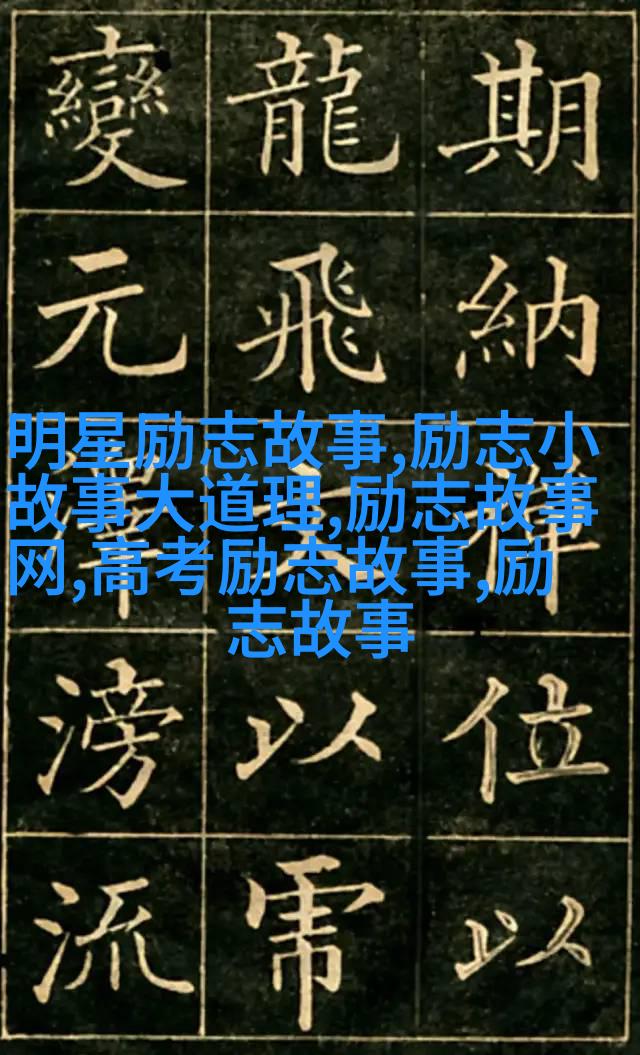 期納位以
龍飛以
變元澤滂流
明星励志故事,励志小
故事大道理,励志故事
网,高考励志故事,励
志故事